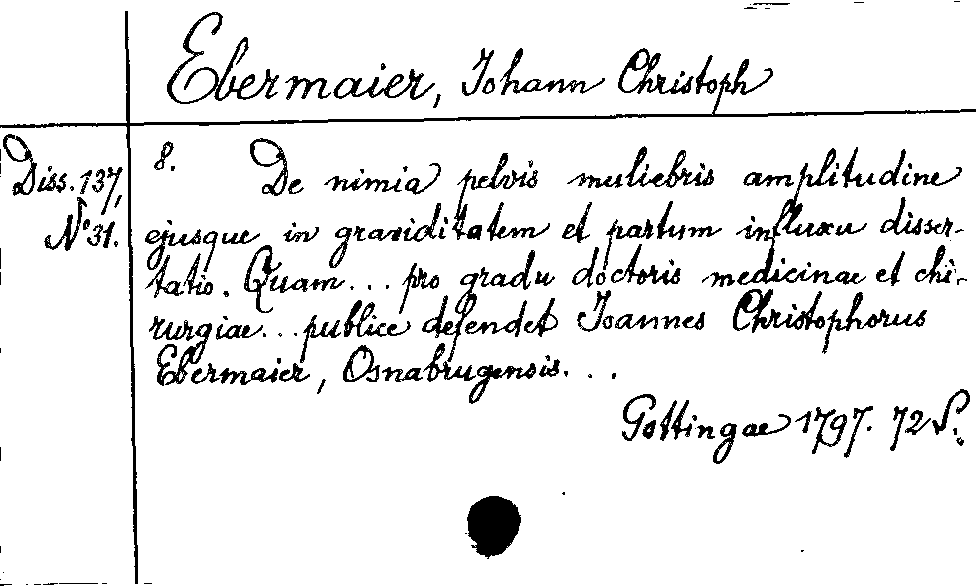 Ebermaier, Johann Christoph
Diss. 137,
N° 31.
8. De nimia pelvis muliebris amplitudine
ejusque in graviditatem et partum influxu disser-
tatio. Quam... pro gradu doctoris medicinae et chi-
rurgiae... publice defendet Joannes Christophorus
Ebermaier, Osnabrugensis...
Gottingae 1797. 72 S.